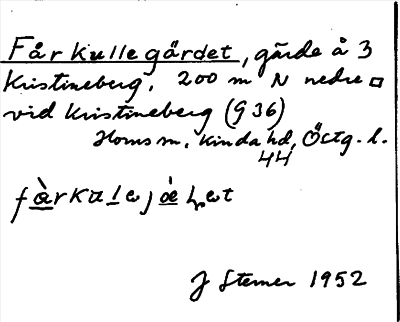 Fårkullegärdet, gärde å 3
Kristineberg, 200 m N nedre □
vid Kristineberg (G 36)
Horns sn, Kinda hd, Östg. l.
44
J Sterner 1952